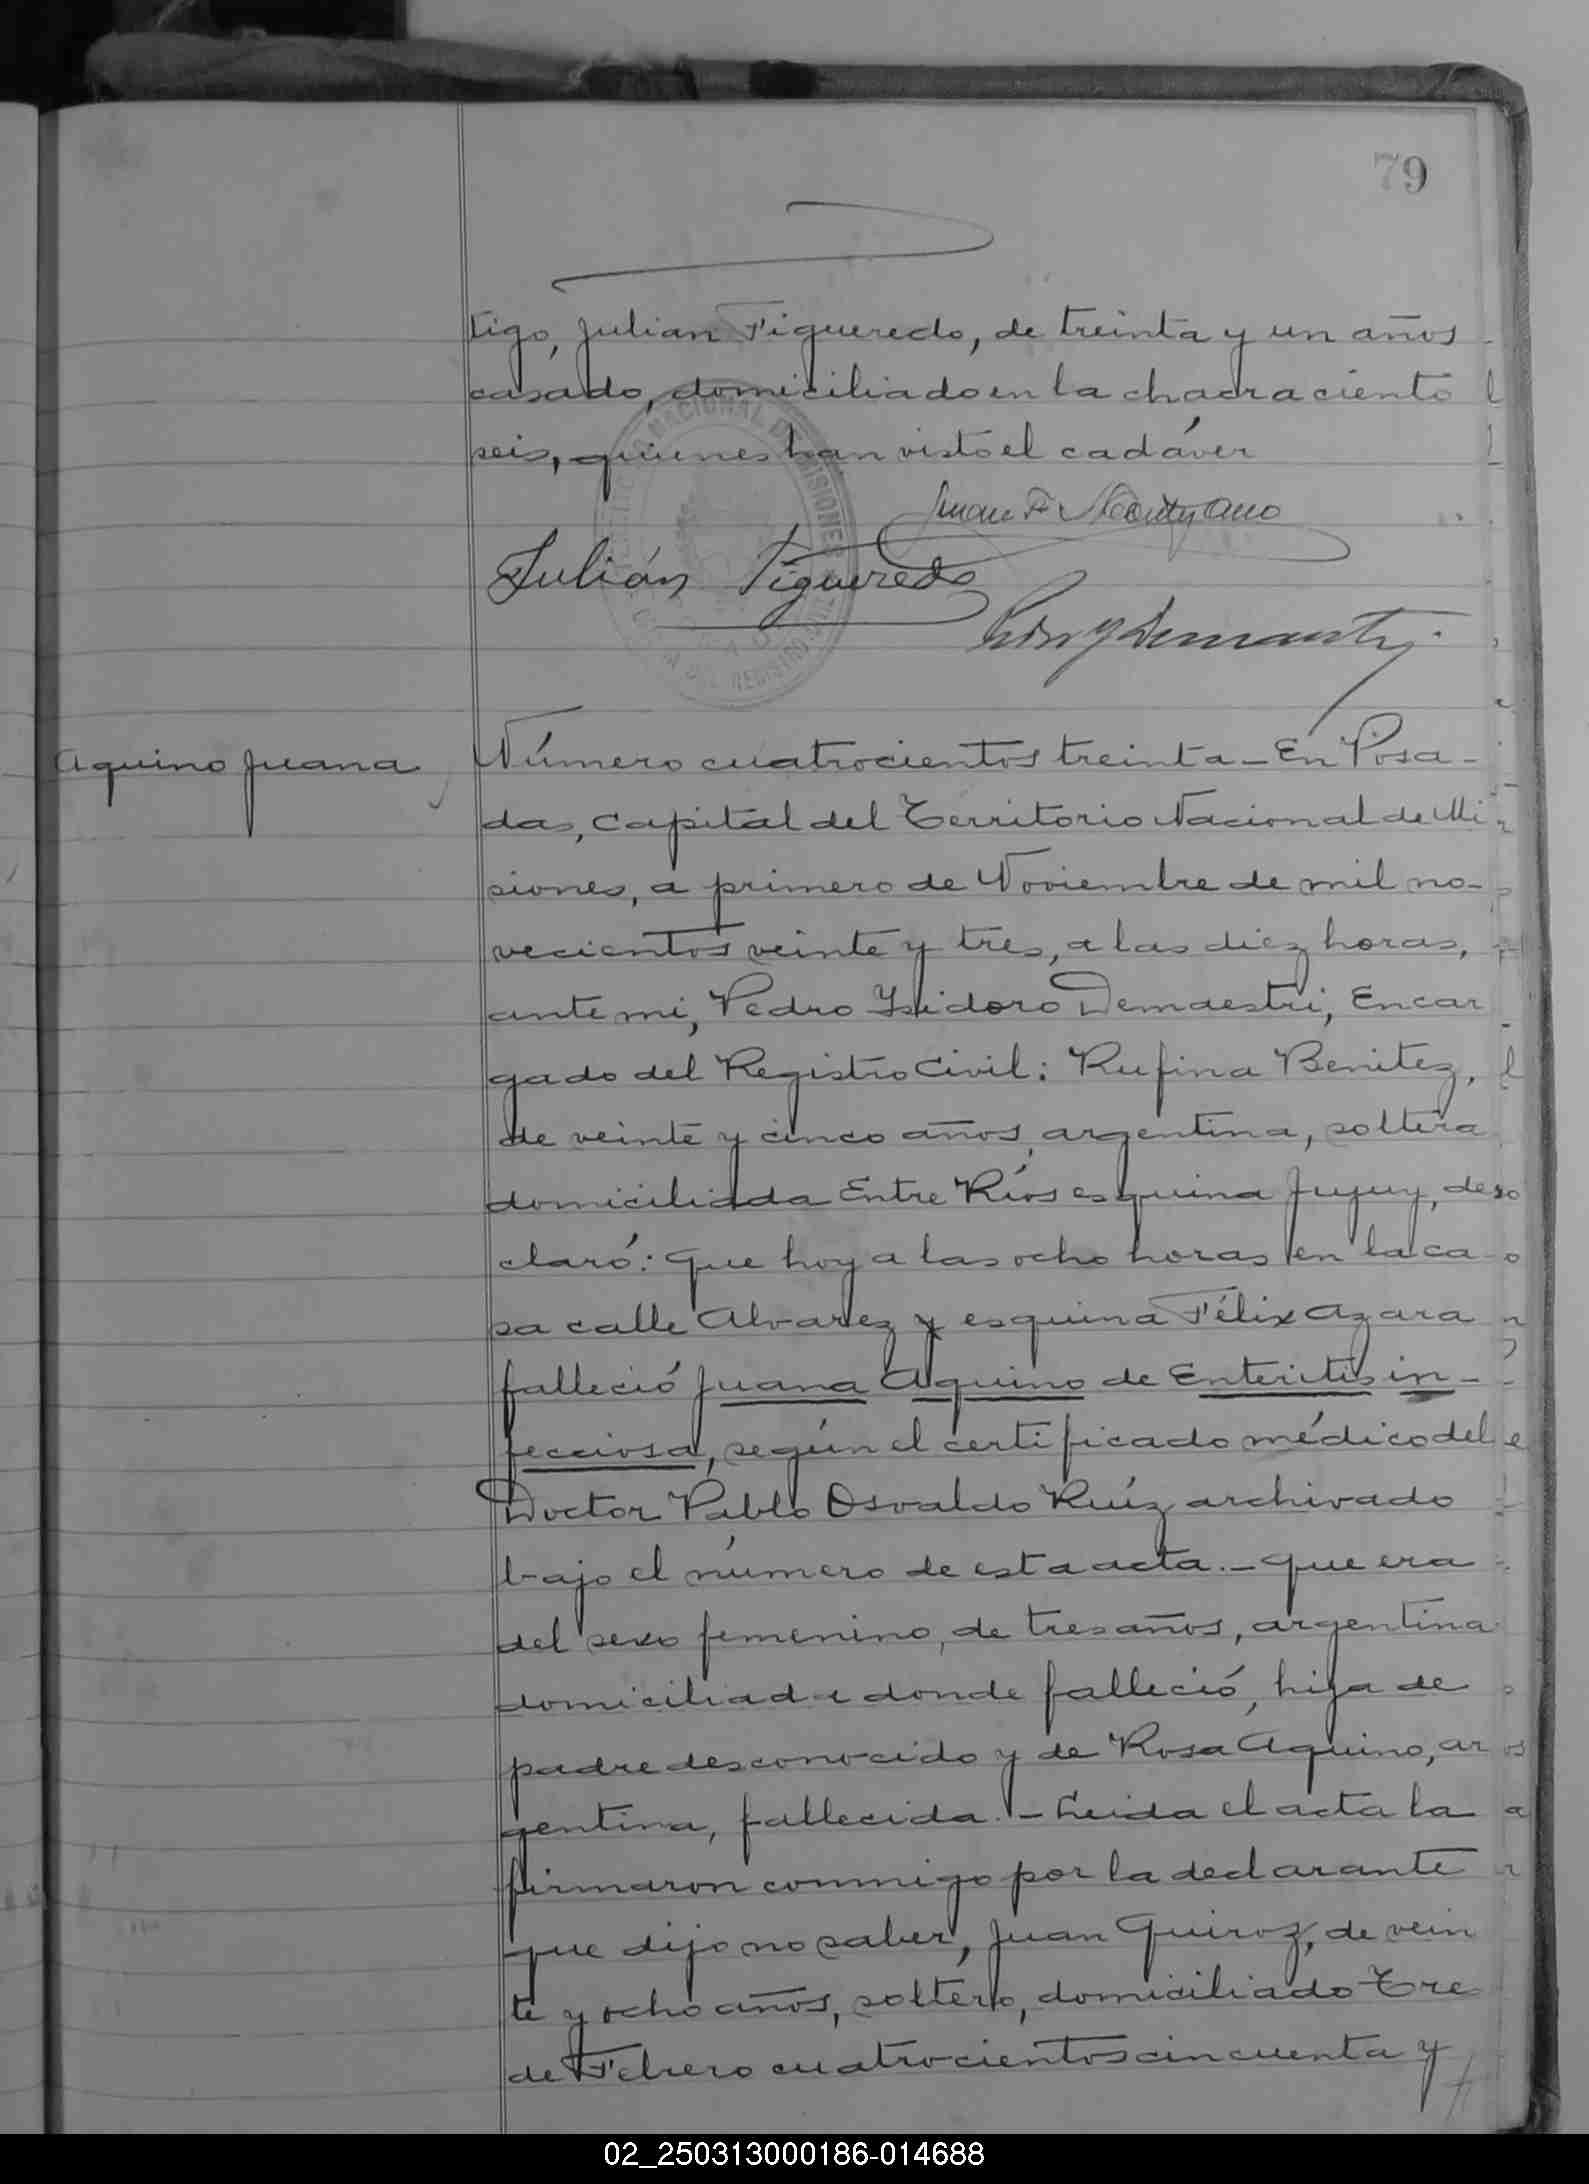 79
tigo, Julian Figueredo, de treinta y un años
casado, domiciliado en la chacra ciento
seis, quienes han visto el cadáver
Julián Figueredo
Aquino Juana
Número cuatrocientos treinta - En Posa-
das, Capital del Territorio Nacional de Mi
siones, a primero de Noviembre de mil no-
vecientos veinte y tres, a las diez horas,
ante mi, Pedro Isidoro Demaestri, Encar
gado del Registro Civil: Rufina Benitez,
de veinte y cinco años, argentina, soltera
domiciliada Entre Ríos esquina Jujuy, de
claró: Que hoy a las ocho horas en la ca
sa calle Alvarez y esquina Félix Azara
falleció Juana Aquino de Enteritis in-
fecciosa, según el certificado médico del
Doctor Pablo Osvaldo Ruíz archivado
bajo el número de esta acta. - Que era
del sexo femenino, de tres años, argentina
domiciliada donde falleció, hija de
padre desconocido y de Rosa Aquino, ar
gentina, fallecida. - Leida el acta la
firmaron conmigo por la declarante
que dijo no saber, Juan Quiroz, de vein
te y ocho años, soltero, domiciliado Tre
de Febrero cuatrocientos cincuenta y
02_250313000186-014688